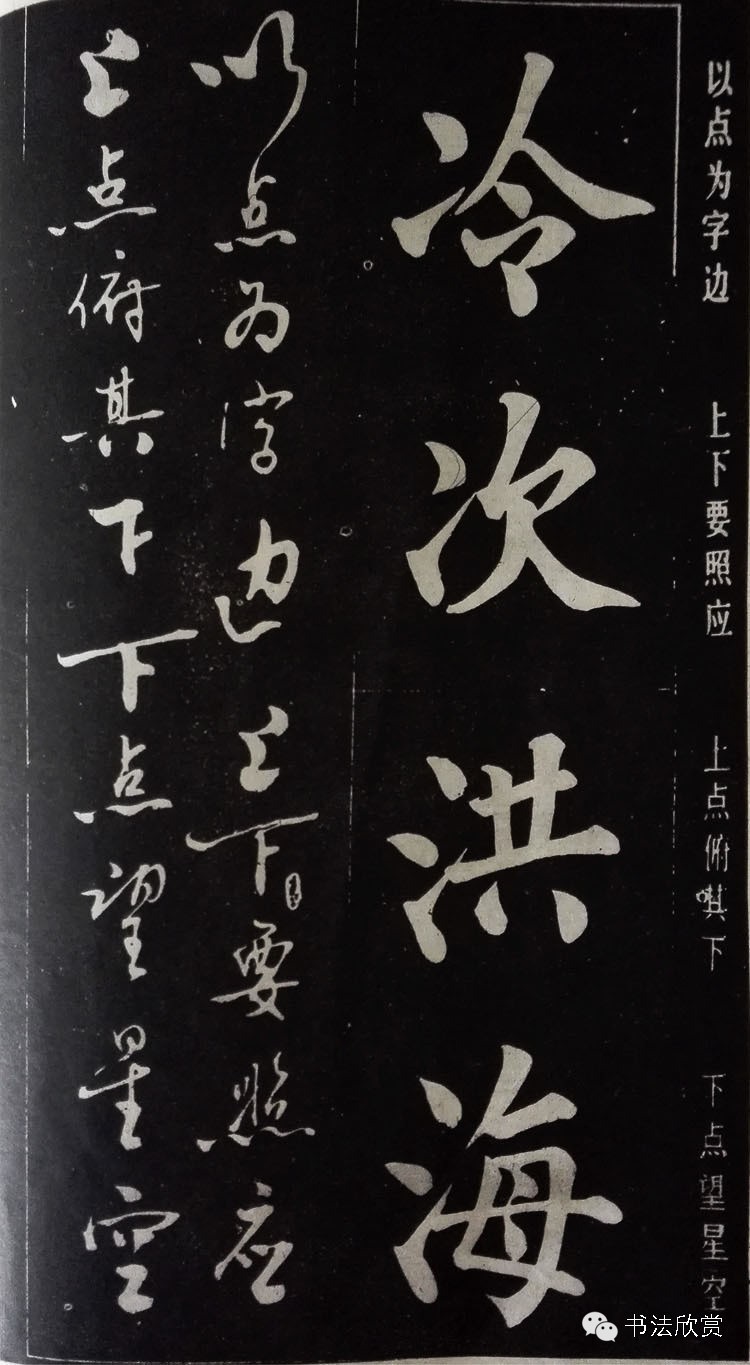 以点为字边 上下要照应 上点俯其下 下点望星空
冷次洪海
以点为字边上下要照应
上点俯其下下点望星空
书法欣赏